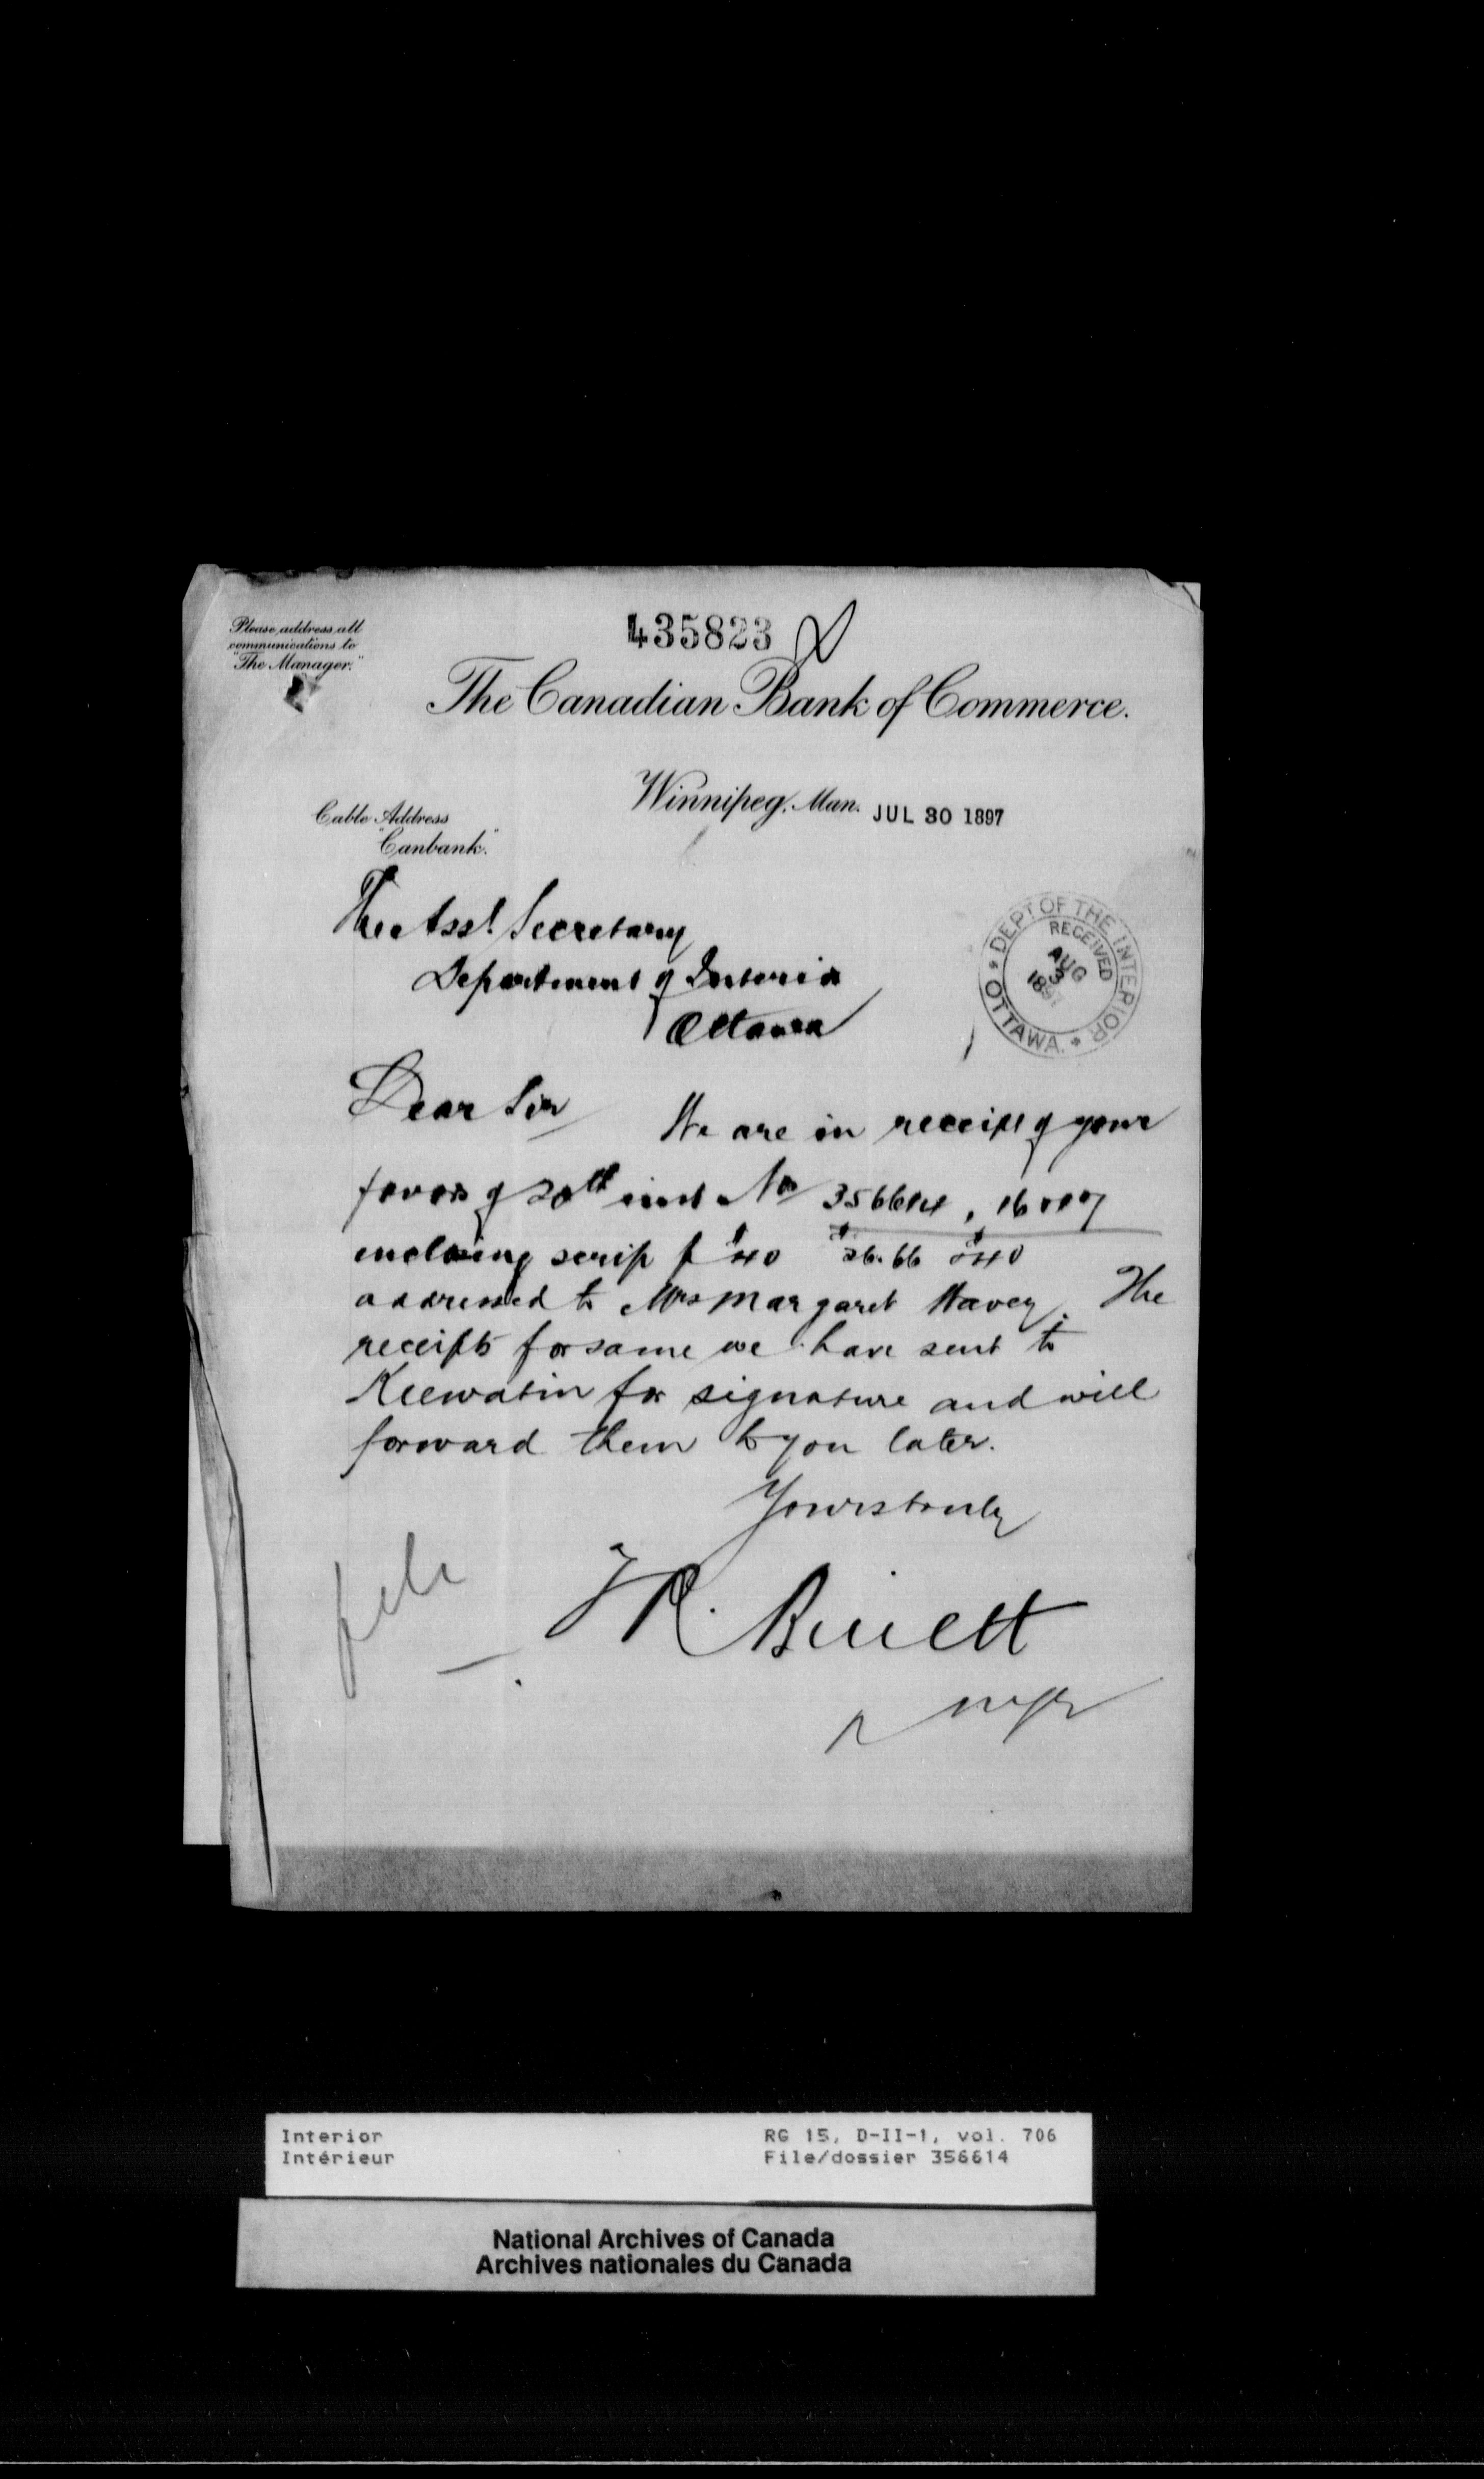 435823
Please address all
communications to
"The Manager."
The Canadian Bank of Commerce.
Winnipeg, Man. JUL 30 1897
Cable Address
"Canbank."
The Asst. Secretary
Department of Interior
Ottawa
DEPT OF THE INTERIOR
RECEIVED
AUG
3
1897
* OTTAWA. *
Dear Sir We are in receipt of your
favors of 20th inst Nos 356614, 16 & 17
enclosing scrip f $40 $26.66 & $40
addressed to Mrs Margaret Havey. The
receipts for same we have sent to
Keewatin for signature and will
forward them to you later.
Yours truly
file
mgr
Interior RG 15, D-II-1, vol. 706
Intérieur File/dossier 356614
National Archives of Canada
Archives nationales du Canada